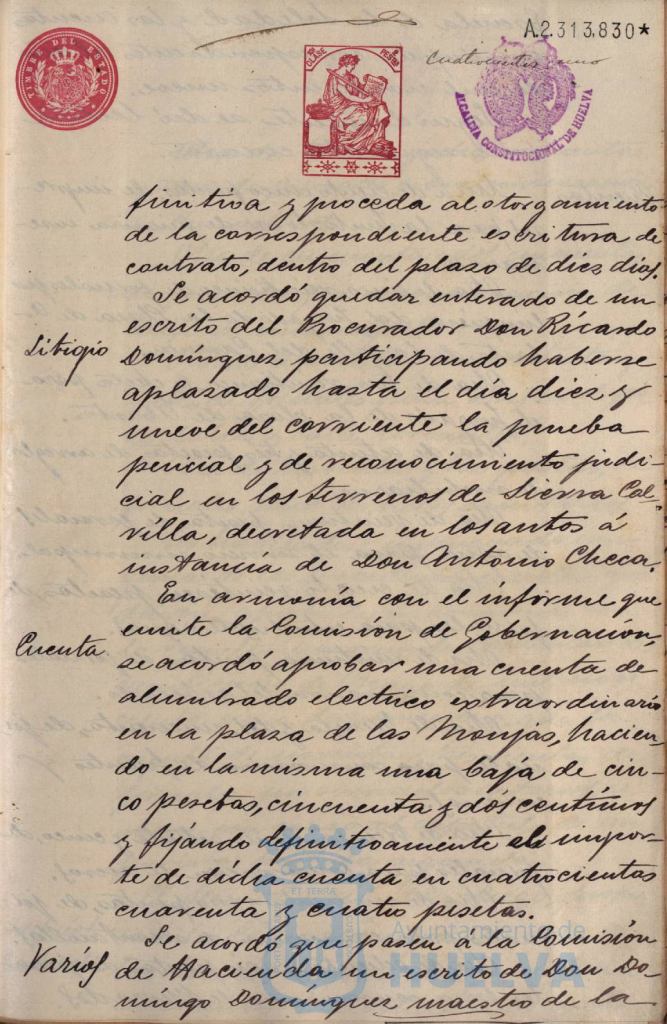 A.2.313.830*
TIMBRE DEL ESTADO
CLASE
PESETAS
ALCALDIA CONSTITUCIONAL DE HUELVA
finitiva y proceda al otorgamiento
de la correspondiente escritura de
contrato, dentro del plazo de diez dias.
Se acordó quedar enterado de un
Litigio
escrito del Procurador Don Ricardo
Domínguez participando haberse
aplazado hasta el día diez y
nueve del corriente la prueba
pericial y de reconocimiento judi-
cial en los terrenos de Sierra Cal-
villa, decretada en los autos á
instancia de Don Antonio Checa.
En armonía con el informe que
Cuenta
emite la Comisión de Gobernación,
se acordó aprobar una cuenta de
alumbrado electrico extraordinario
en la plaza de las Monjas, hacien-
do en la misma una baja de cin-
co pesetas, cincuenta y dós centimos
y fijando definitivamente el impor-
te de dicha cuenta en cuatrocientas
cuarenta y cuatro pesetas.
Se acordó que pasen á la Comisión
Varios
de Hacienda un escrito de Don Do-
mingo Domínguez maestro de la
ET TERRA
Ayuntamiento de
HUELVA